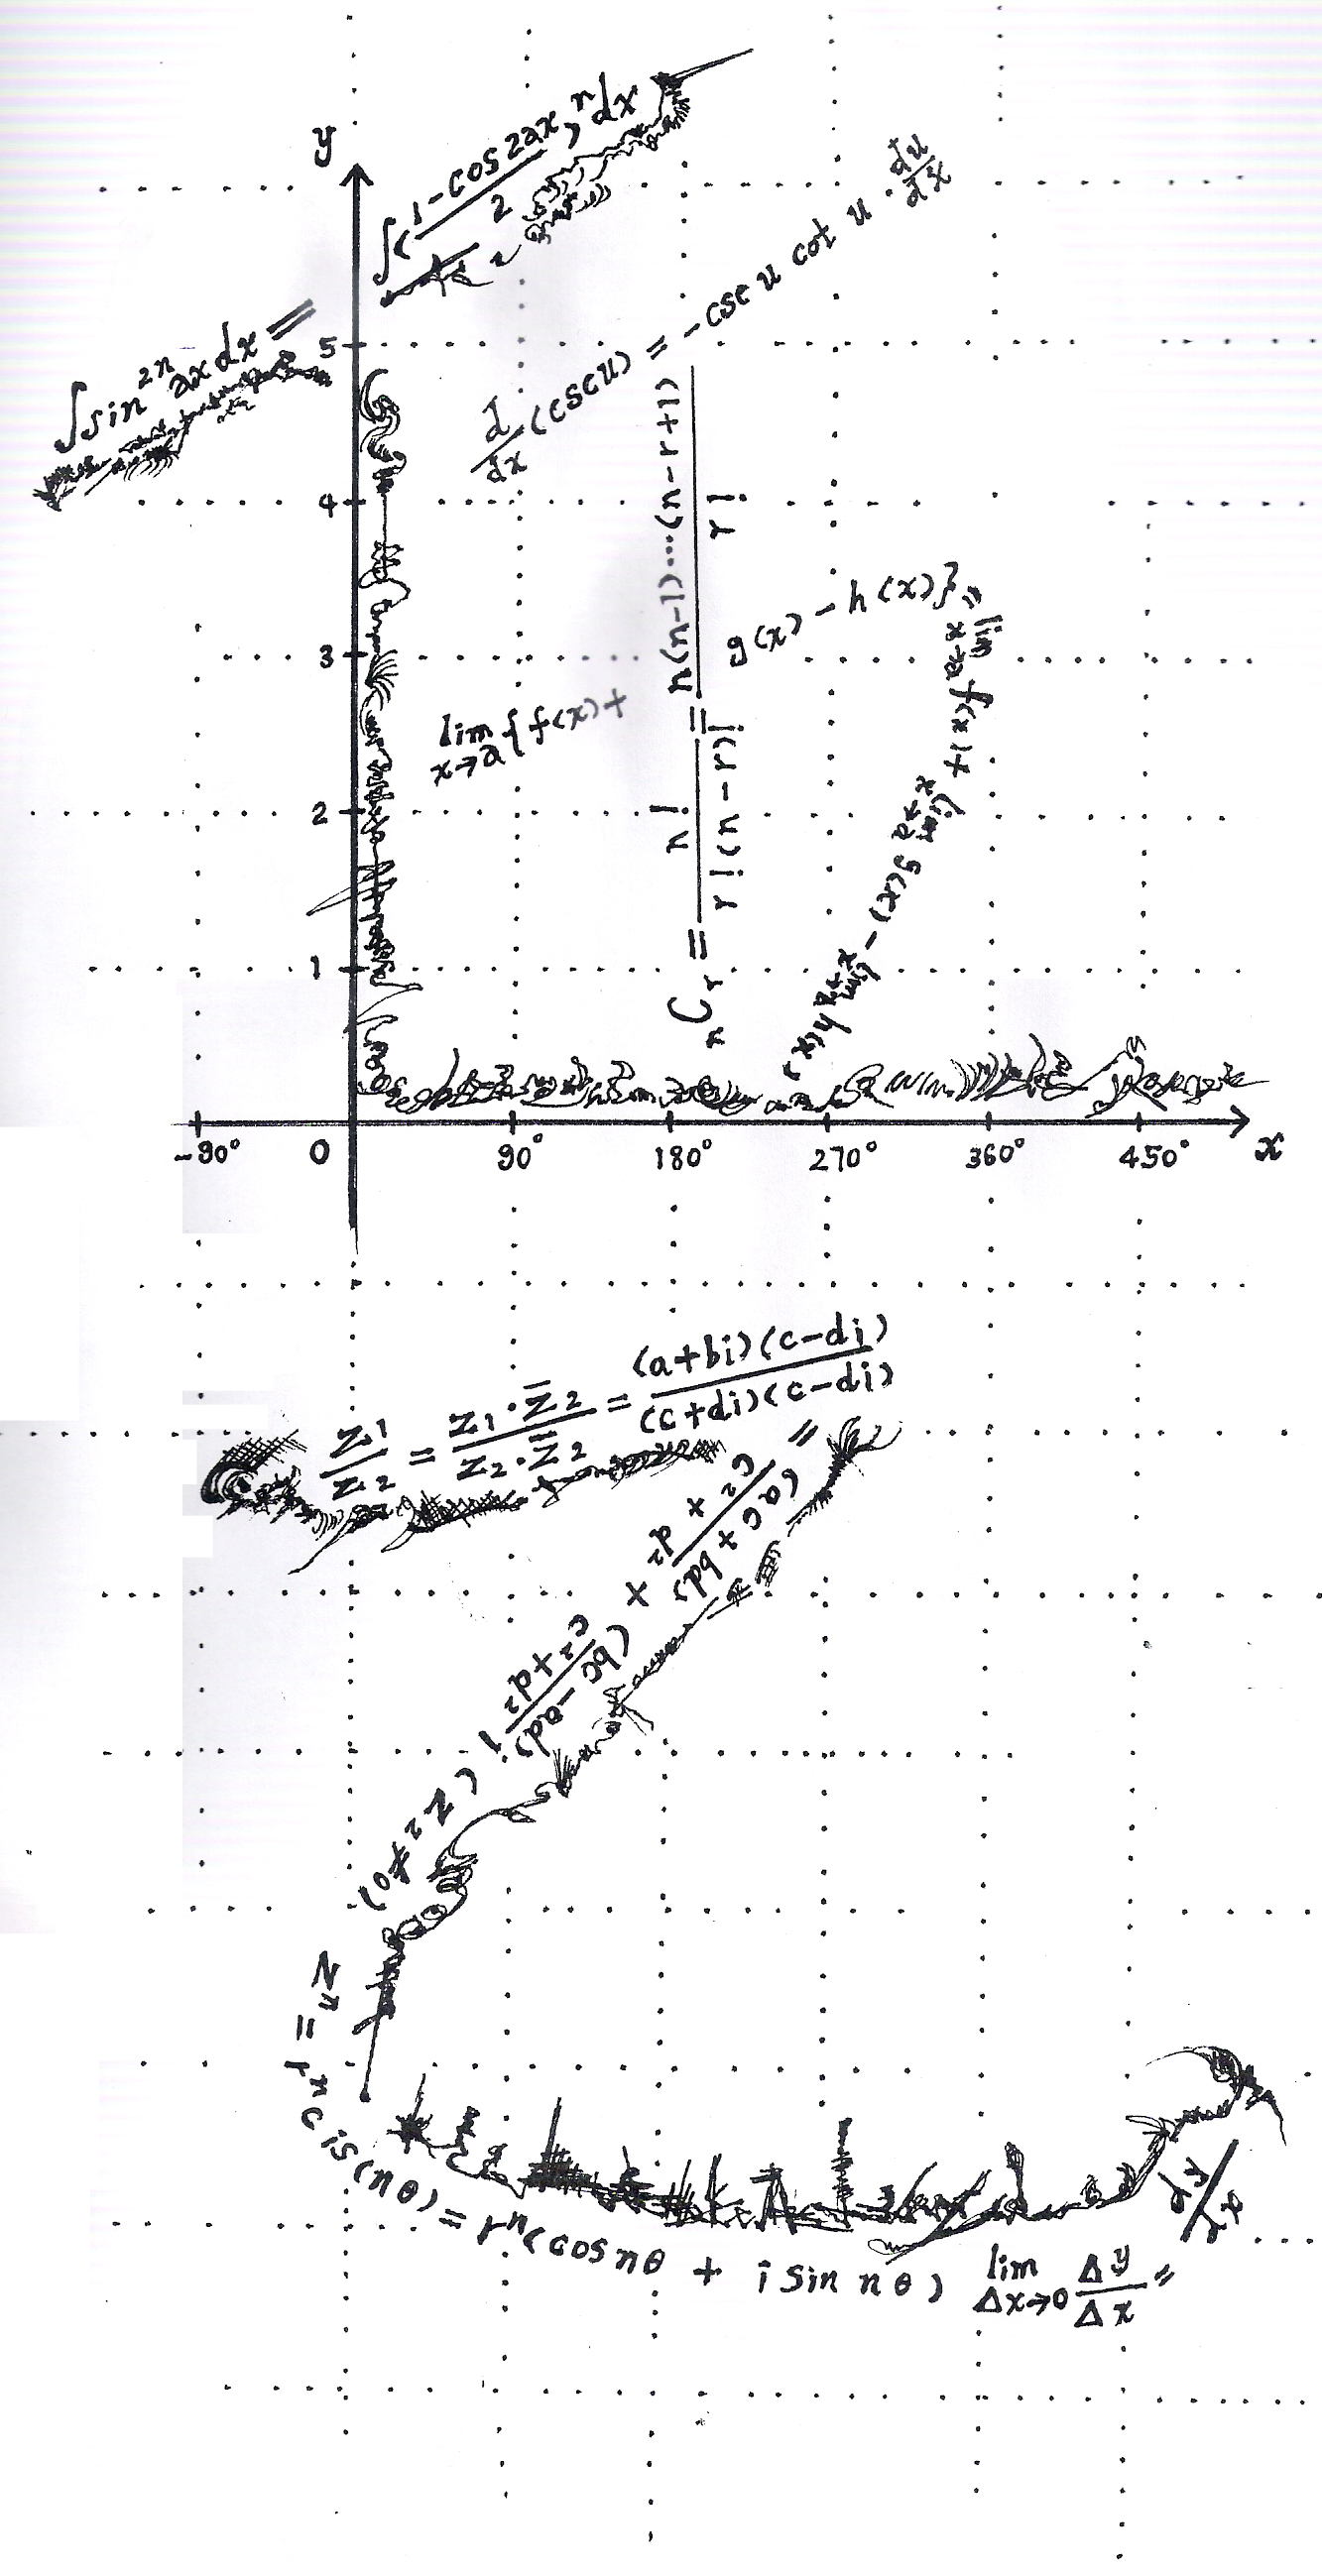 y
∫sin²ⁿax dx = ∫(1-cos2ax/2)ⁿdx
d/dx(csc u) = -csc u cot u · du/dx
5
4
3
2
1
lim x→a {f(x)+ g(x) - h(x)} = lim x→a f(x) + lim x→a g(x) - lim x→a h(x)
ₙCᵣ = n!/r!(n-r)! = n(n-1)...(n-r+1)/r!
-90° 0 90° 180° 270° 360° 450° x
Z₁/Z₂ = Z₁·Z̅₂/Z₂·Z̅₂ = (a+bi)(c-di)/(c+di)(c-di)
= (ac+bd)/c²+d² + (bc-ad)/c²+d² i (Z₂≠0)
Zⁿ = rⁿcis(nθ) = rⁿ(cos nθ + i sin nθ)
lim Δx→0 Δy/Δx = dy/dx